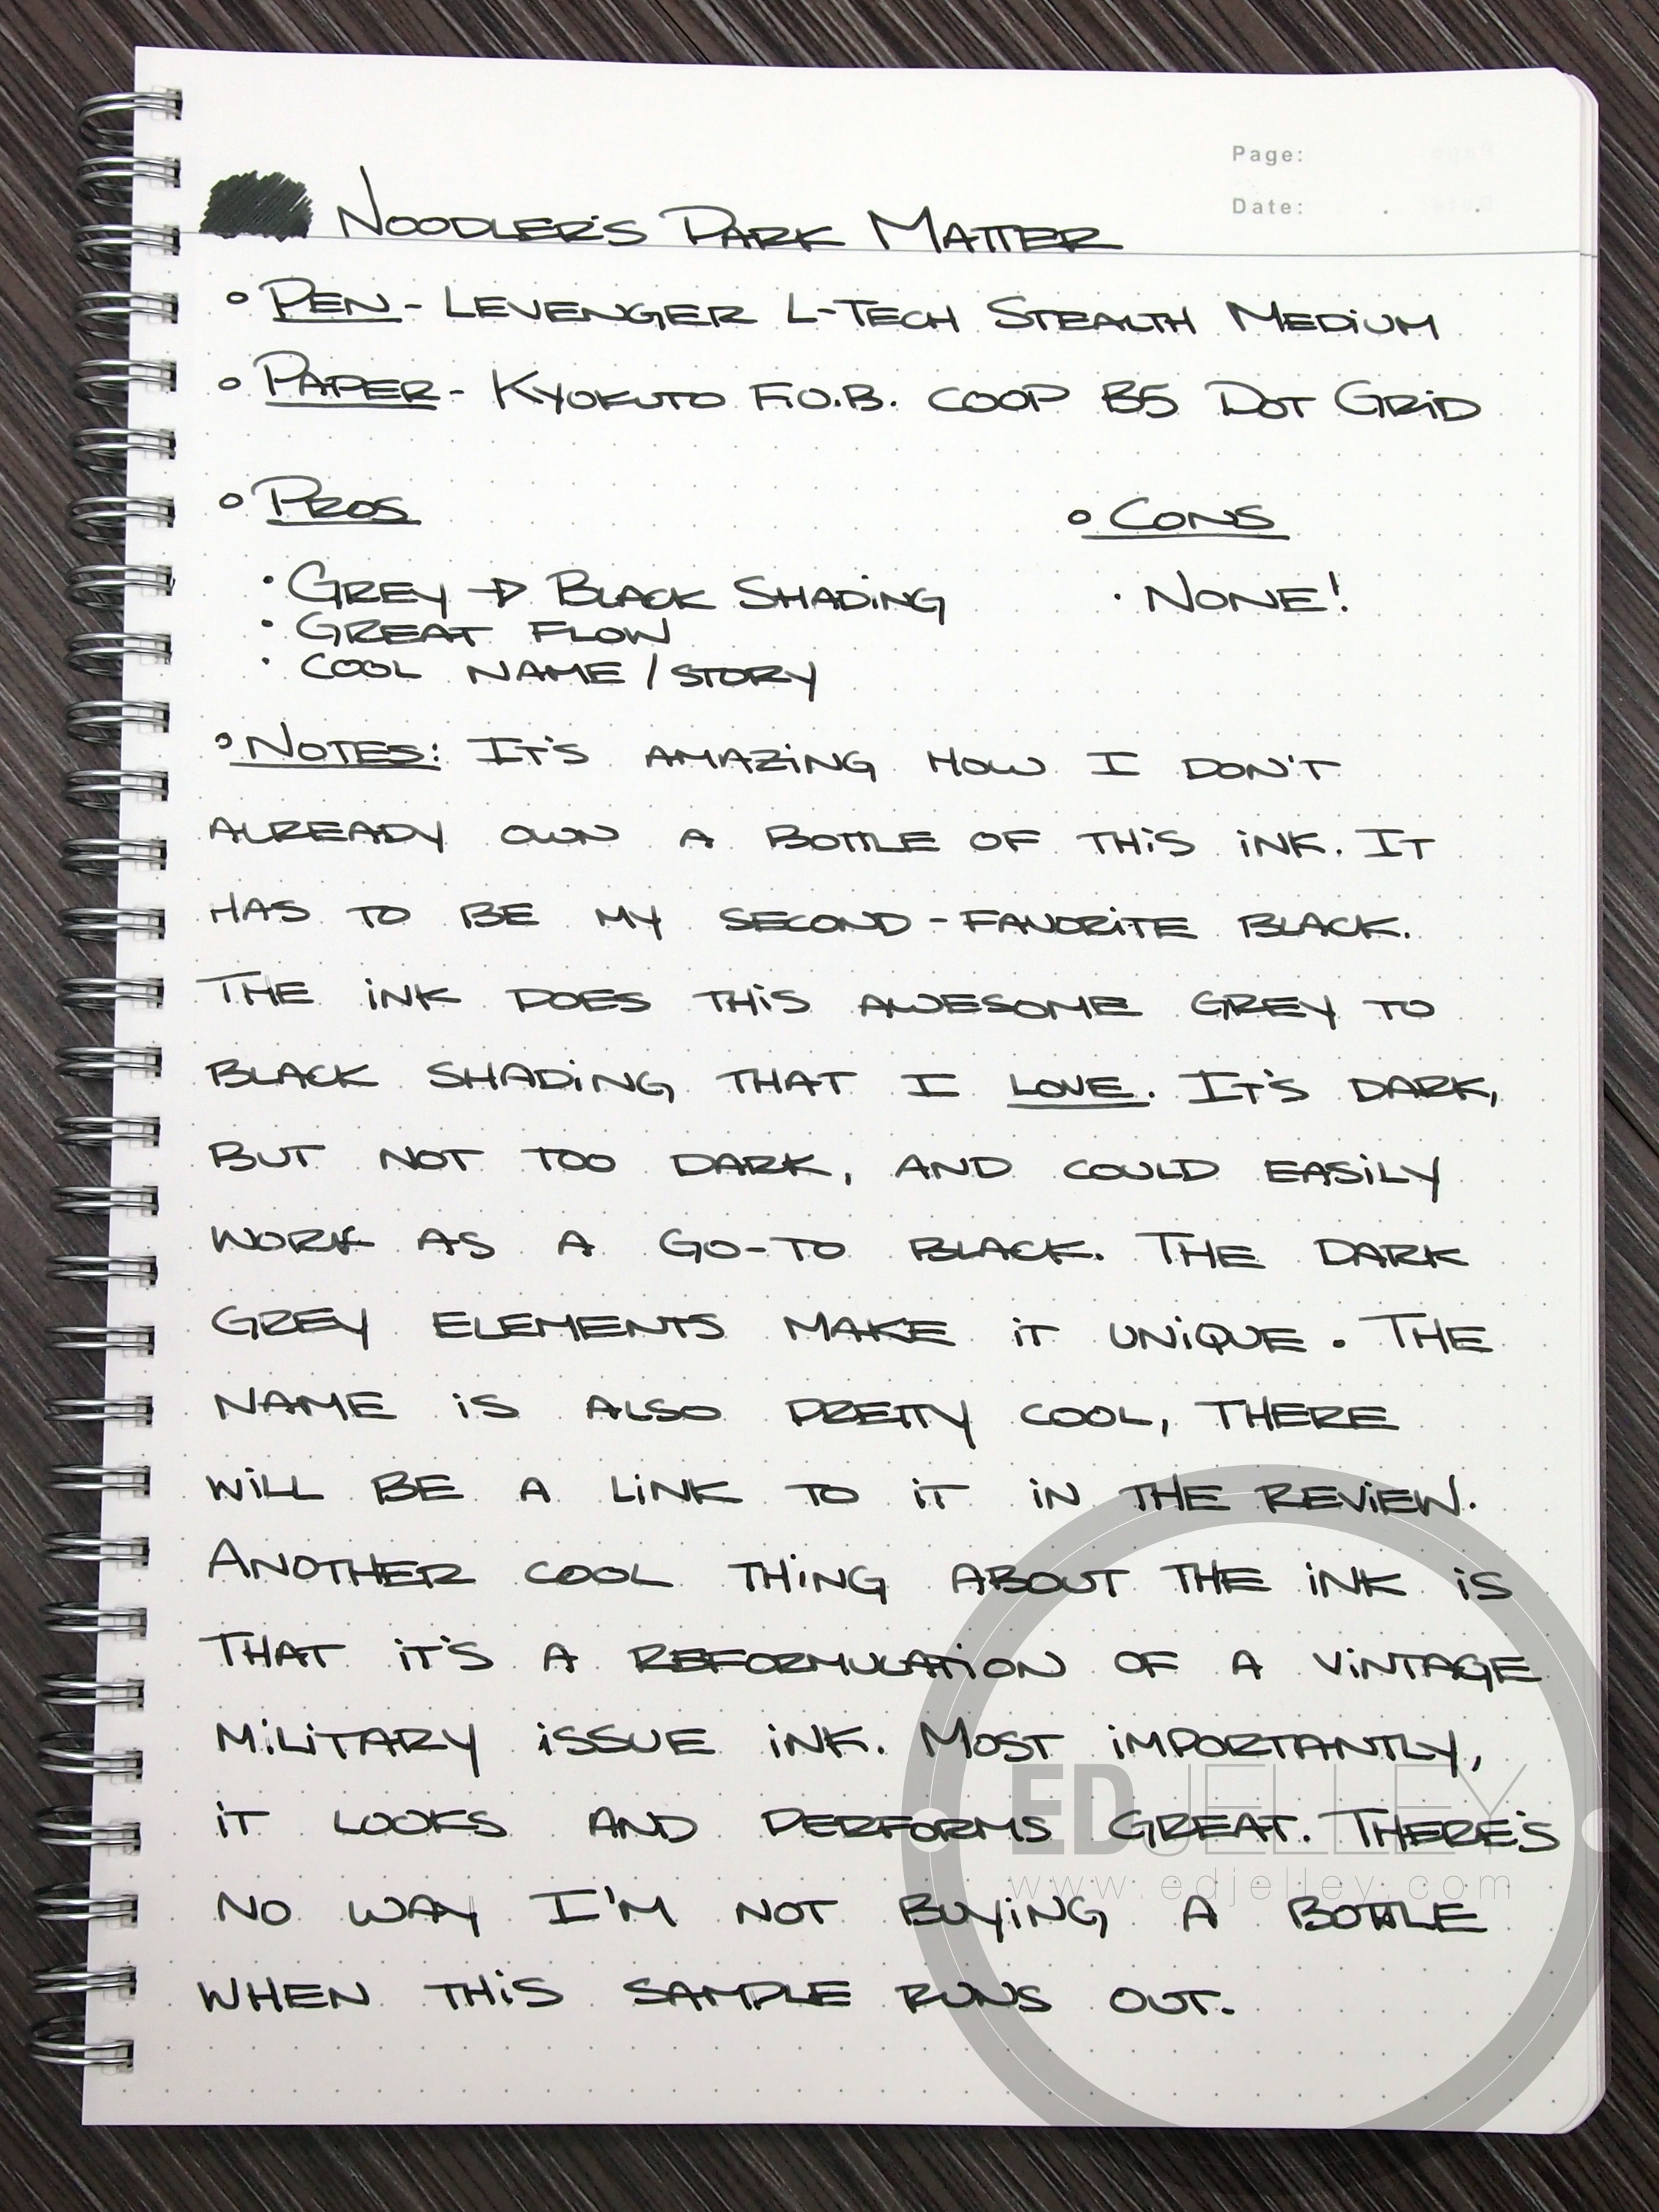 Page:
Date: . .
NOODLER'S DARK MATTER
PEN - LEVENGER L-TECH STEALTH MEDIUM
PAPER - KYOKUTO F.O.B. COOP B5 DOT GRID
PROS
CONS
• GREY → BLACK SHADING
• NONE!
• GREAT FLOW
• COOL NAME / STORY
NOTES: IT'S AMAZING HOW I DON'T
ALREADY OWN A BOTTLE OF THIS INK. IT
HAS TO BE MY SECOND-FAVORITE BLACK.
THE INK DOES THIS AWESOME GREY TO
BLACK SHADING THAT I LOVE. IT'S DARK,
BUT NOT TOO DARK, AND COULD EASILY
WORK AS A GO-TO BLACK. THE DARK
GREY ELEMENTS MAKE IT UNIQUE. THE
NAME IS ALSO PRETTY COOL, THERE
WILL BE A LINK TO IT IN THE REVIEW.
ANOTHER COOL THING ABOUT THE INK IS
THAT IT'S A REFORMULATION OF A VINTAGE
MILITARY ISSUE INK. MOST IMPORTANTLY,
IT LOOKS AND PERFORMS GREAT. THERE'S
NO WAY I'M NOT BUYING A BOTTLE
WHEN THIS SAMPLE RUNS OUT.
EDJELLEY
www.edjelley.com